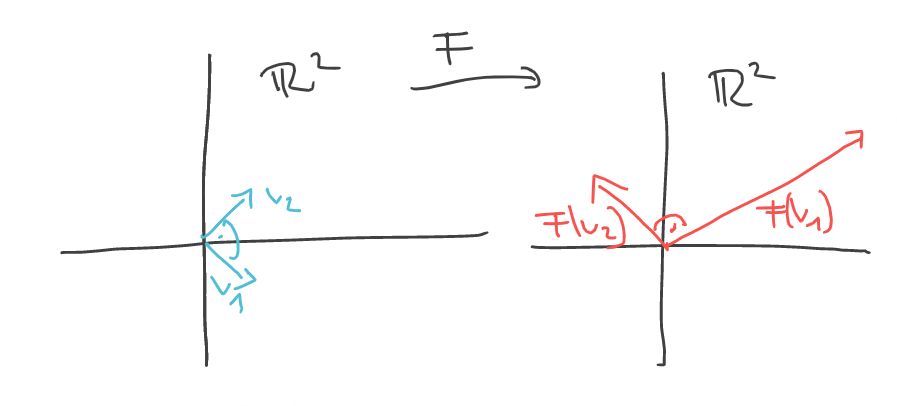 ℝ² F ℝ²
v₂
v₁
F(v₂) F(v₁)